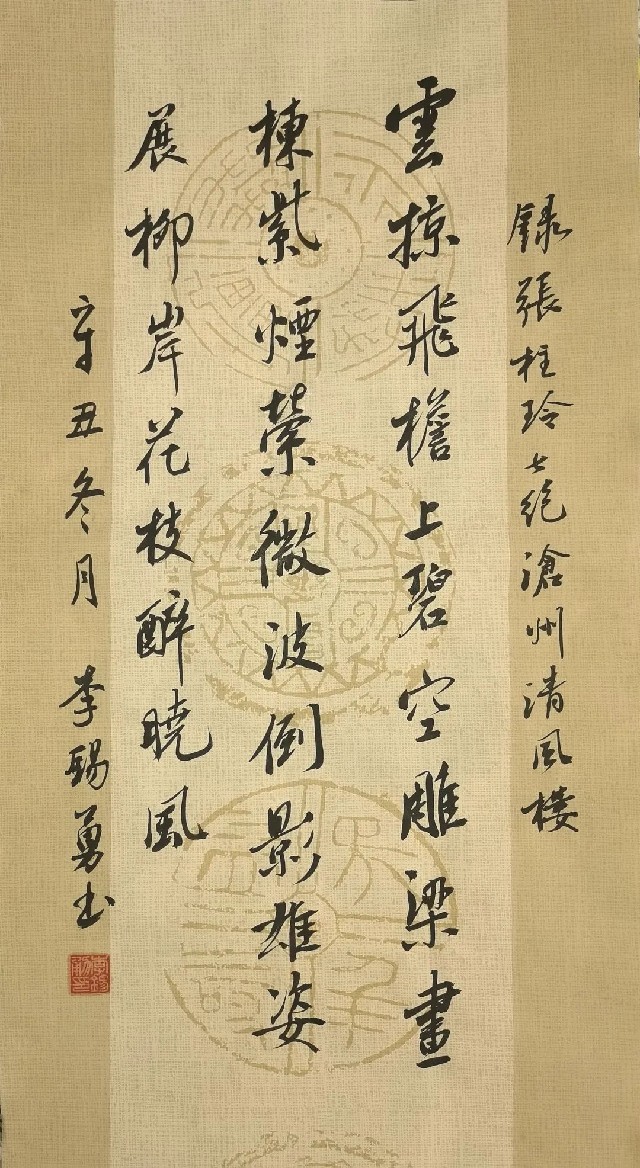 録張柱玲七绝滄州清風楼
雲掠飛檐上碧空雕梁畫
棟紫煙縈微波倒影雄姿
展柳岸花枝醉曉風
辛丑冬月 李錫勇书